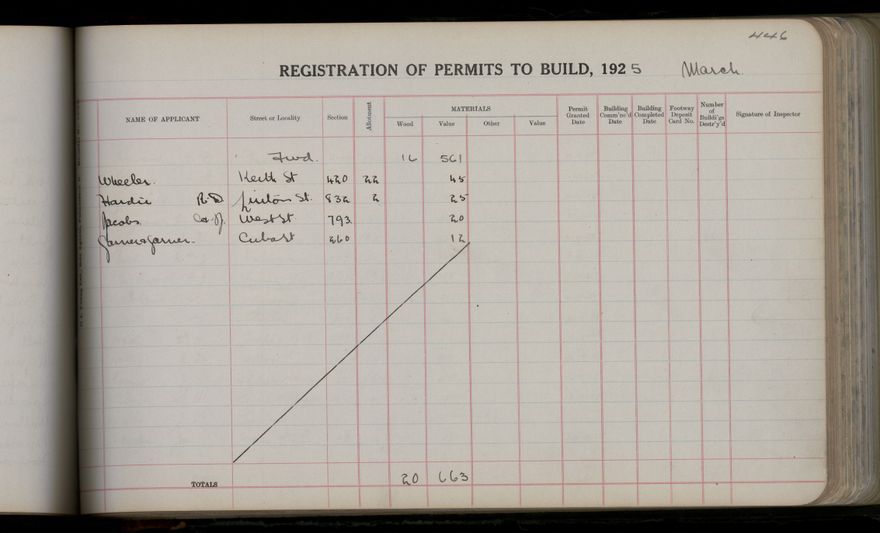 446
REGISTRATION OF PERMITS TO BUILD, 1925 March.
NAME OF APPLICANT Street or Locality Section Allotment MATERIALS Wood Value Other Value Permit Granted Date Building Comm're'd Date Building Completed Date Footway Deposit Card No. Number of Buildi'gs Destr'y'd Signature of Inspector
Fwd. 16 561
Wheeler. Keith St 420 22 45
Hardie R.D. Linton St. 832 2 25
Jacobs West St 793 20
Cuba St 260 12
TOTALS 20 663